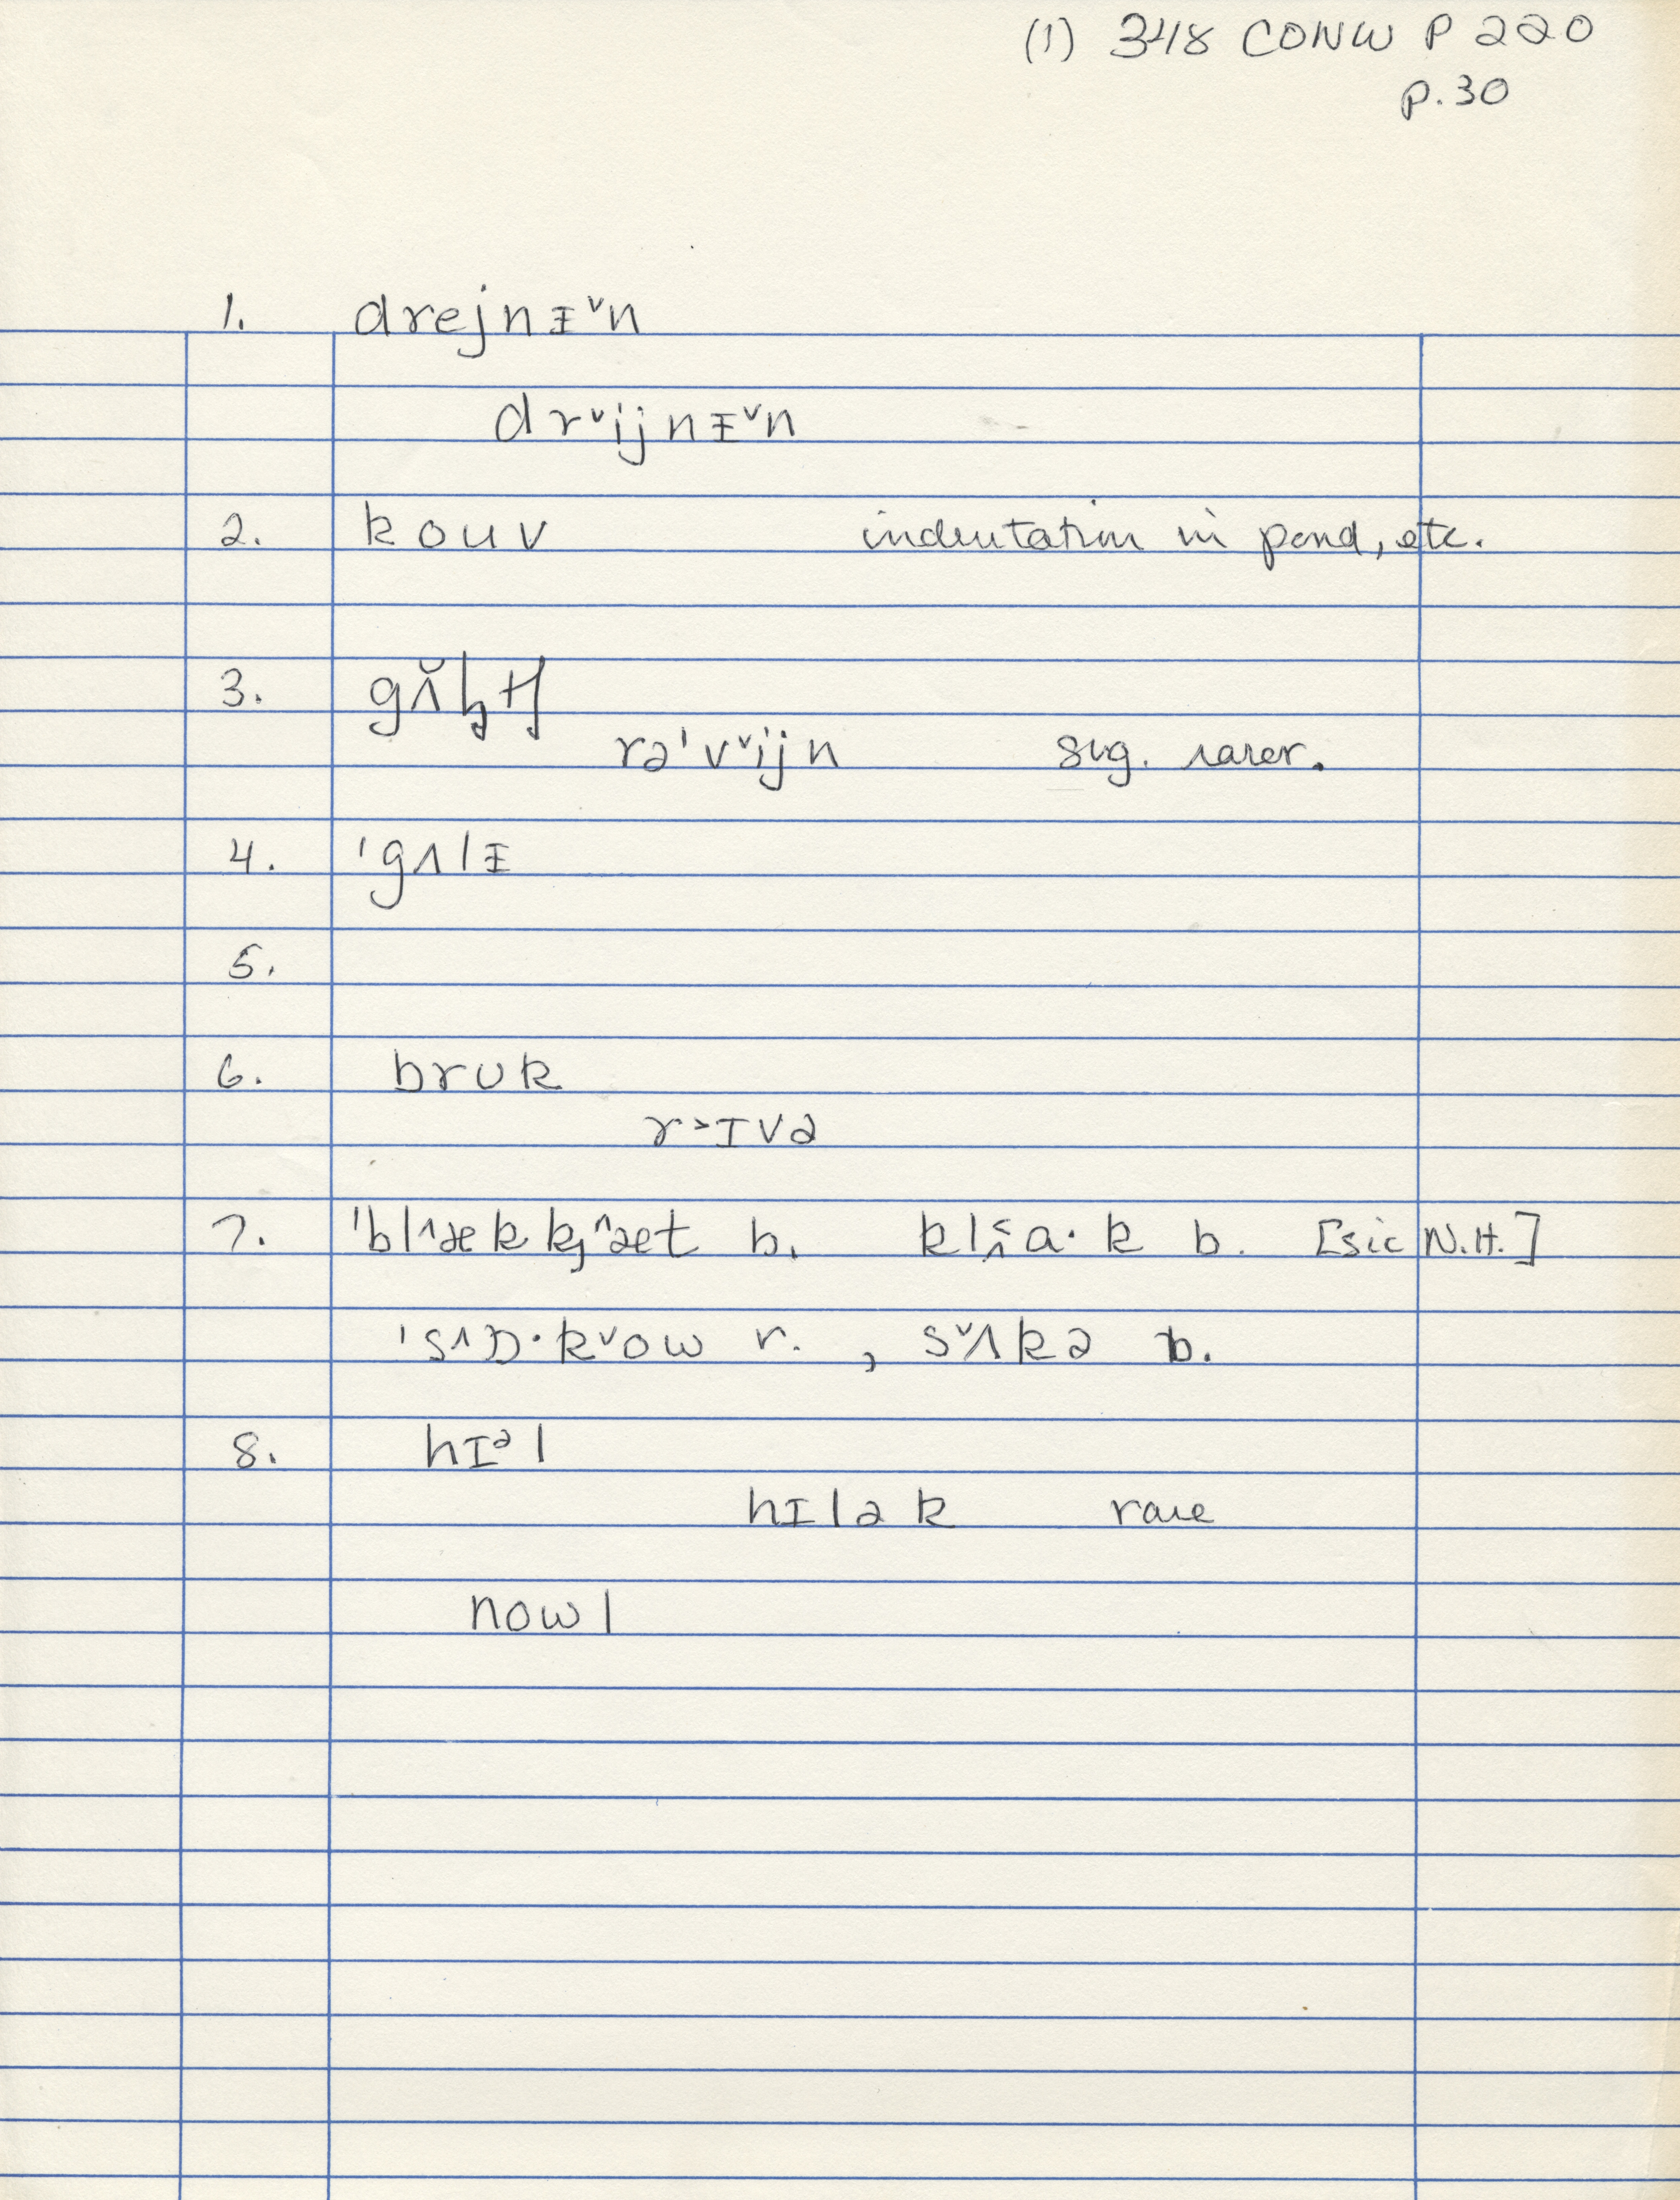 (1) 348 CONW P 220
p. 30
1. drejnᵻ˅n
dr˅ijnᵻ˅n
2. kouv indentation in pond, etc.
3.
rəˈv˅ijn sug. rarer.
4. ˈgʌlᵻ
5.
6. brʊk
r˃ɪvə
7. ˈbl˄æk k̡˄æt b. b. [sic N.H.]
ˈs˄ɒ·k˅ow r. , s˅ʌkə b.
8. hɪᵊl
hɪlək rare
nowl